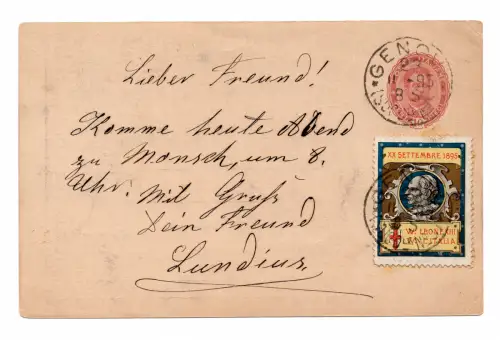 Lieber Freund!
Komme heute Abend
zu Monsch, um 8.
Uhr. Mit Gruß
Dein Freund
Lundius.
GENOVA
11 -95
8 S
XX SETTEMBRE 1895
W. LEONE XIII
ITALIA